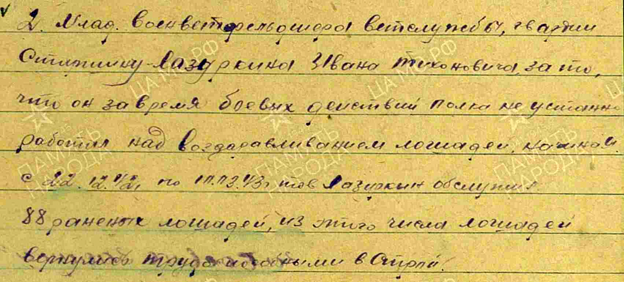 2. Млад. военветфельдшера ветслужбы, гвардии
Старшину Лазуркина Ивана Тихоновича, за то,
что он за время боевых действий полка неустанно
работал над воздаравливанием лошадей, начиная
с 22.12.42г. по 17.03.43г. тов Лазуркин обслужил
88 раненых лошадей, из этого числа лошадей
вернулись трудоспособными в Строй.